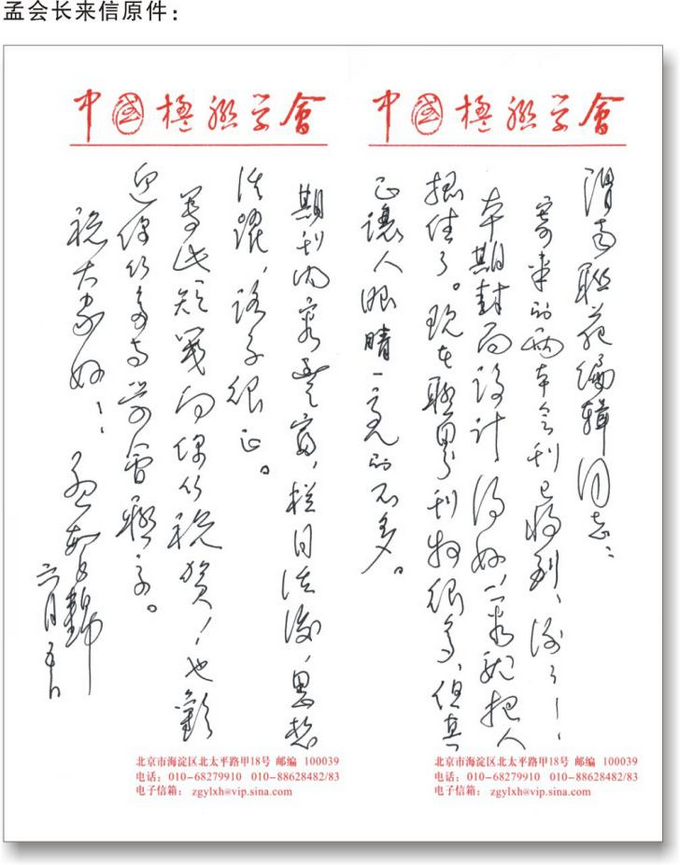 孟会长来信原件：
中國楹联学會
渭南联花编辑同志：
寄来的两本会刊已收到，谢了！
本期封面设计得好！一看就把人
抓住了。现在联界刊物很多，但真
正讓人眼睛一亮的不多。
北京市海淀区北太平路甲18号 邮编 100039
电话：010-68279910 010-88628482/83
电子信箱： zgylxh@vip.sina.com
中國楹联学會
期刊内容丰富，栏目活泼，思想
活跃，路子很正。
写此短笺向你们祝贺！也歡
迎你们多与学會联系。
祝大家好！ 孟繁錦
六月五日
北京市海淀区北太平路甲18号 邮编 100039
电话：010-68279910 010-88628482/83
电子信箱： zgylxh@vip.sina.com